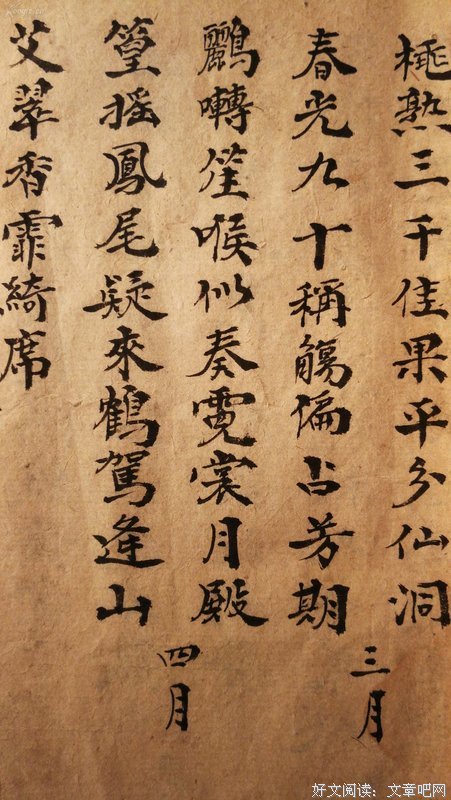 桃熟三千佳果平分仙洞
春光九十稱觴偏占芳期
三月
鸝囀笙喉似奏霓裳月殿
篁摇鳳尾疑來鶴駕逢山
四月
艾翠香霏綺席
好文阅读：文章吧网